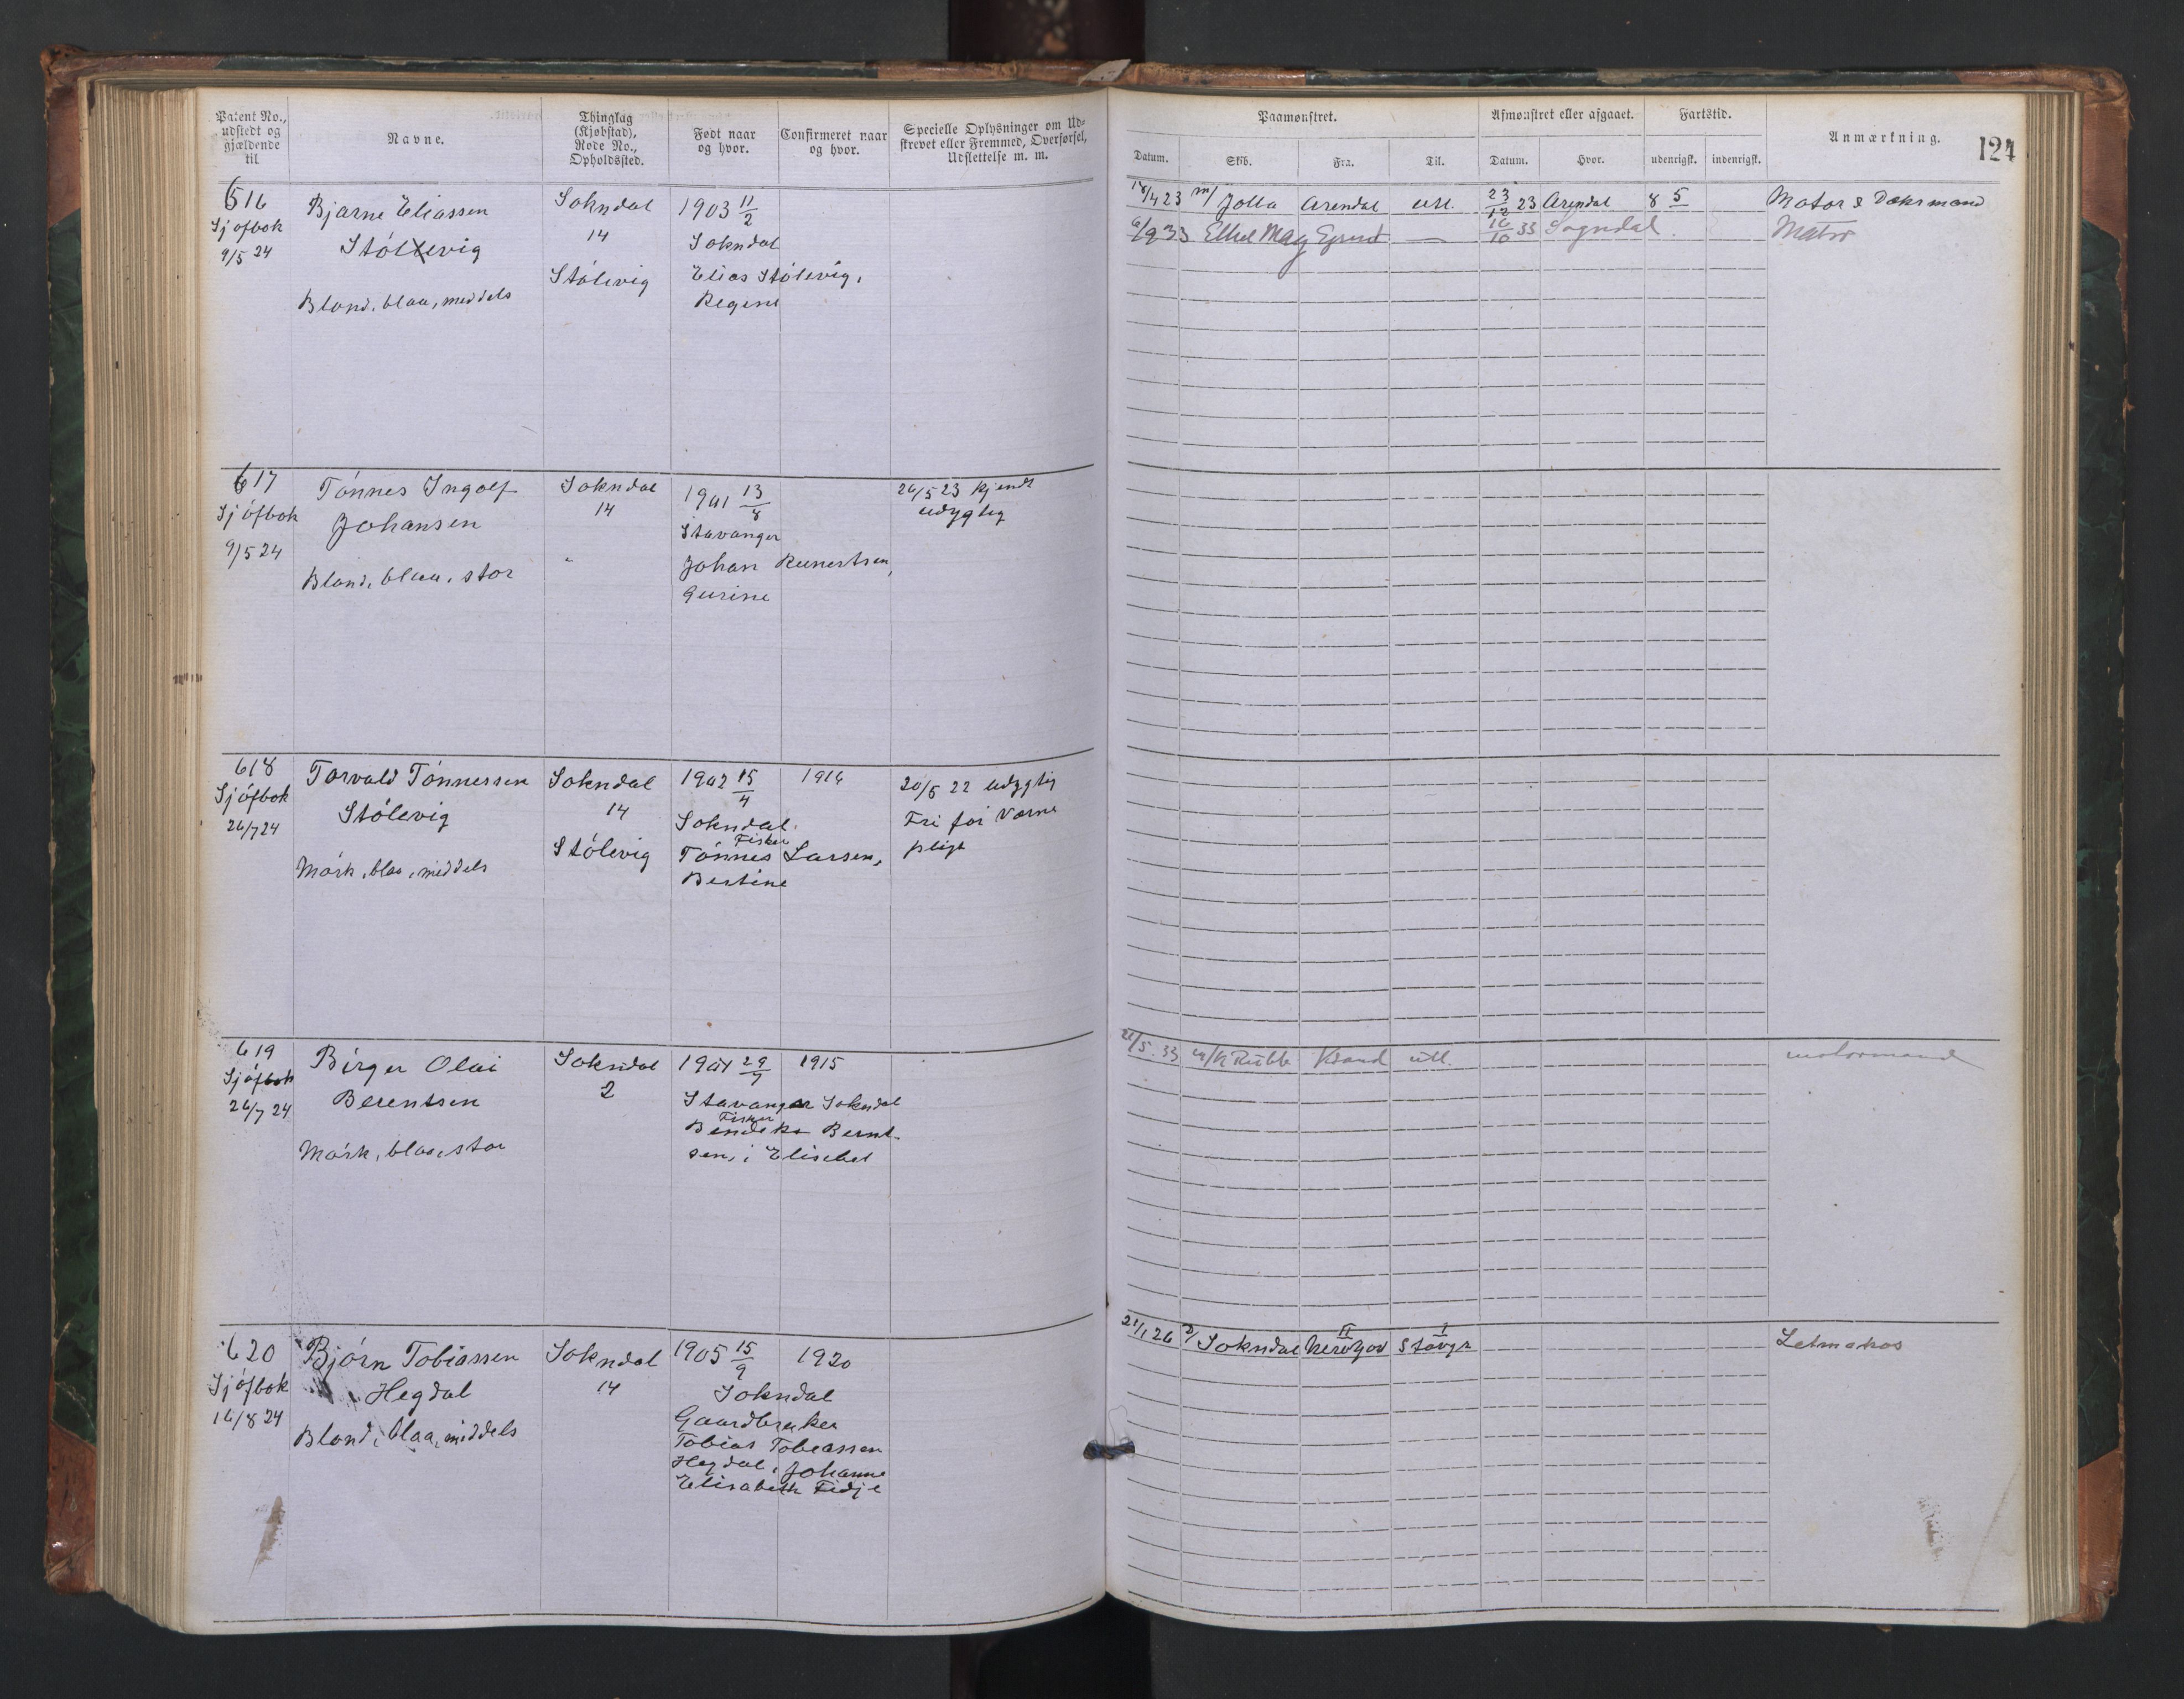 Patent No.,
udstedt og
gjældende
til
Navne.
Thinglag
(Kjøbstad),
Rode No.,
Opholdssted.
Født naar
og hvor.
Confirmeret naar
og hvor.
Specielle Oplysninger om Ud-
skrevet eller Fremmed, Overførsel,
Udslettelse m. m.
616
Sjøfbok
9/5 24
Bjarne Eliassen
Stólevig
Blond, blaa, middels
Sokndal
14
Stólevig
1903 11/2
Sokndal
Elias Stólevig,
Regine
617
Sjófbok
9/5 24
Tónnes Ingolf
Johansen
Blond, blaa, stor
Sokndal
14
1901 13/8
Stavanger
Johan Reinertsen,
Gurine
26/5 23 kjendt
udygtig
618
Sjófbok
26/7 24
Torvald Tónnessen
Stólevig
Mórk, blaa, middels
Sokndal
14
Stólevig
1902 15/4
Sokndal.
Fisker
Tónnes Larsen,
Bertine
1916
20/5 22 udygtig
Fri for Værne
pligt
619
Sjófbok
26/7 24
Birger Olai
Berentsen
Mórk, blaa, stor
Sokndal
2
1901 29/7
1915
Stavanger Sokndal
Fisker
Bendiks Bernt-
sen, Elisabet
620
Sjófbok
16/8 24
Bjórn Tobiassen
Hegdal
Blond, blaa, middels
Sokndal
14
1905 15/9
1920
Sokndal
Gaardbruker
Tobias Tobiassen
Hegdal, Johanne
Elisabeth Fidje
Paamønstret.
Afmønstret eller afgaaet.
Fartstid.
Anmærkning.
124
Datum.
Skib.
Fra.
Til.
Datum.
Hvor.
udenrigsk.
indenrigsk.
18/4 23 m/ Jolla Arendal utl. 23/12 23 Arendal 8 5 Motor & Dæksmand
6/9 33 Ethel May Egersund — 16/10 33 Sogndal. Matr
22/5. 33 m/k Rubb Krsand utl. motormand
21/1 26 D/ Sokndal Stavgr Letmatros